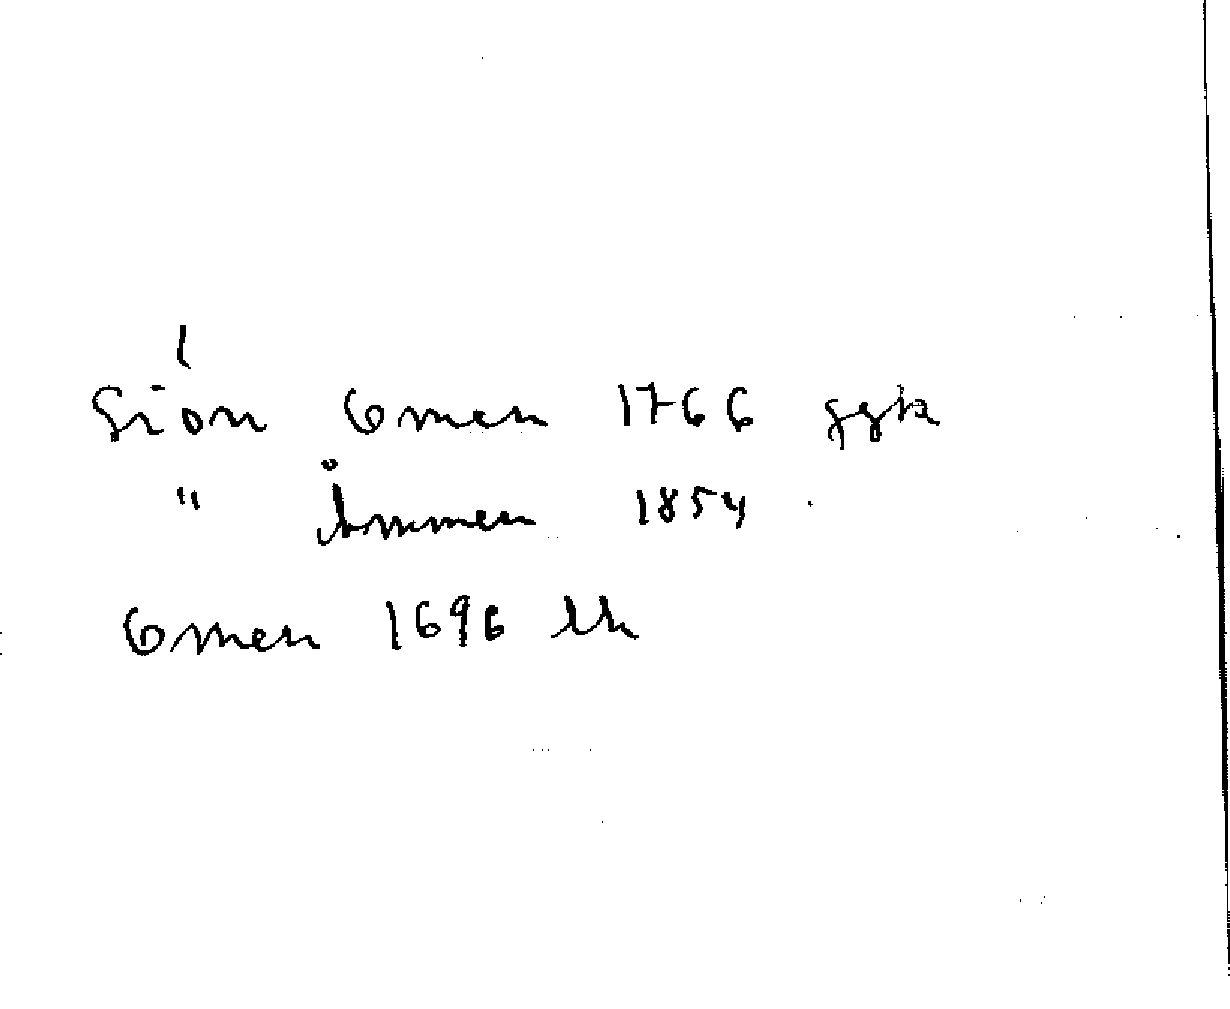 Siön Omen 1766 ggk
" Åmmen 1854
Omen 1696 lh